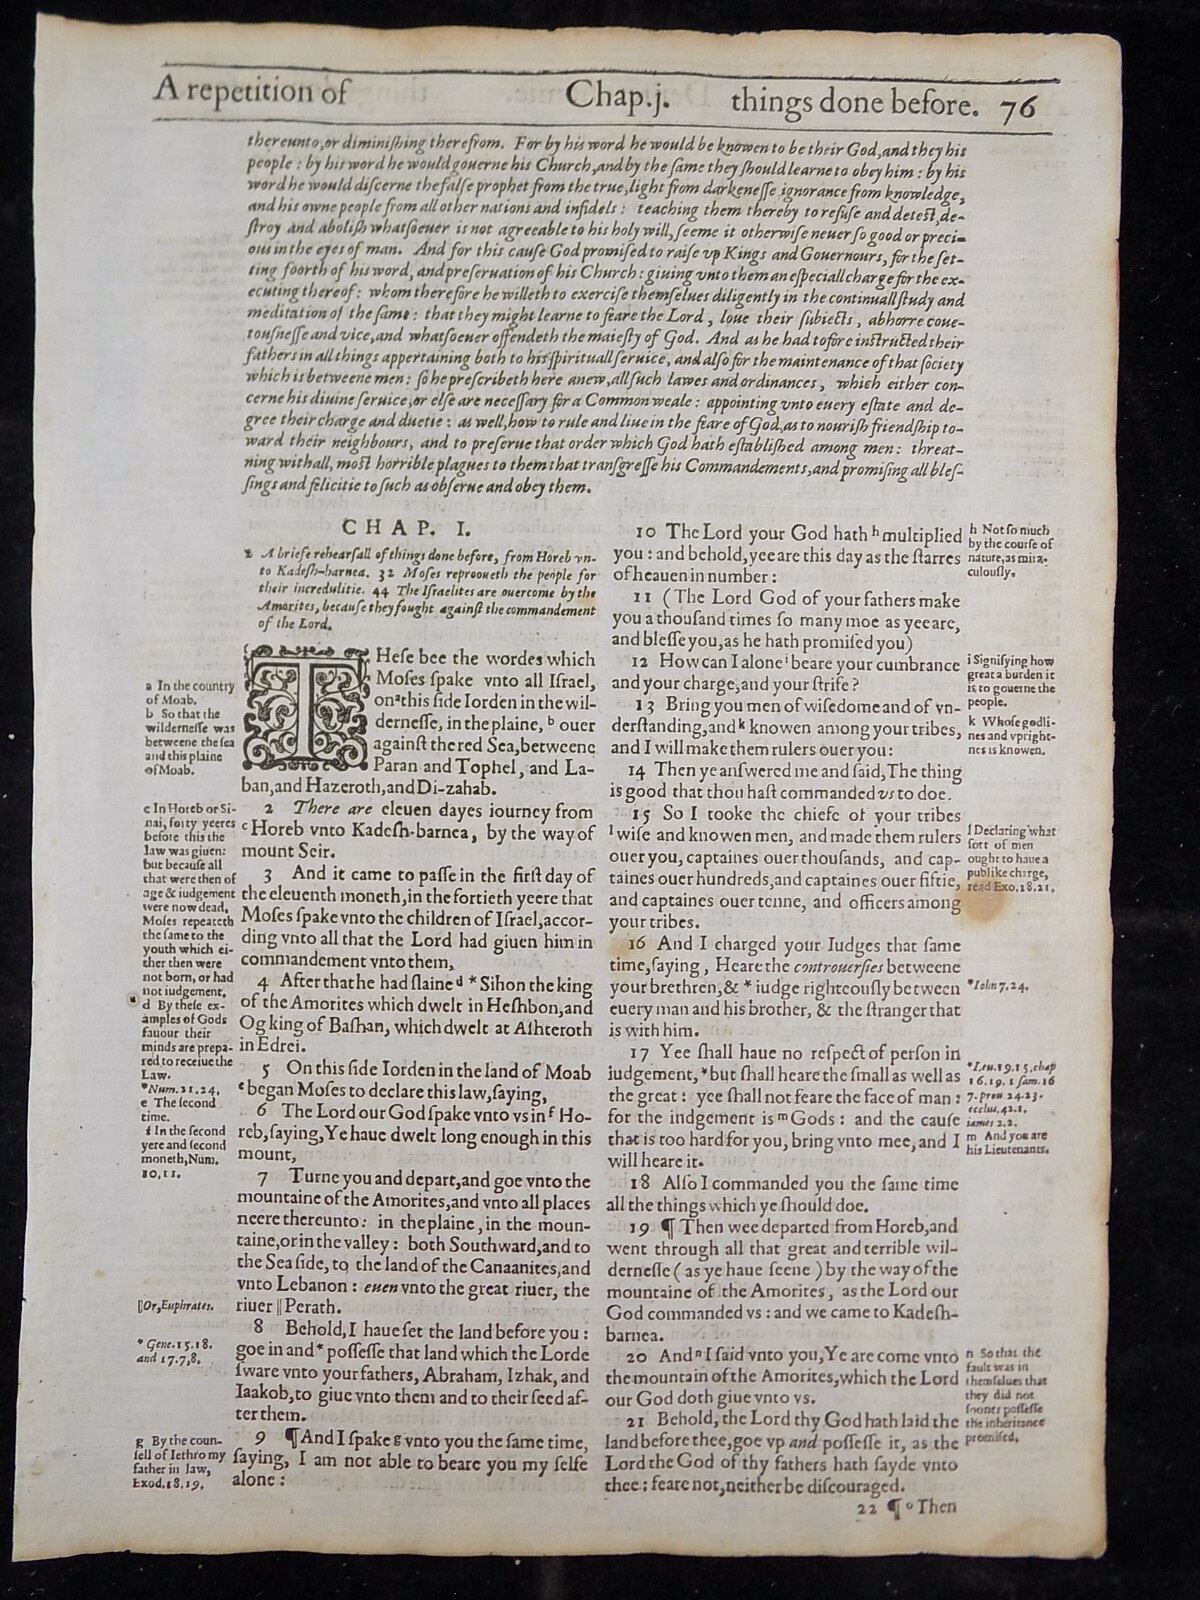 A repetition of Chap.j. things done before. 76
thereunto, or diminiſhing therefrom. For by his word he would be knowen to be their God, and they his
people : by his word he would gouerne his Church, and by the ſame they ſhould learne to obey him : by his
word he would diſcerne the falſe prophet from the true, light from darkeneſſe ignorance from knowledge,
and his owne people from all other nations and infidels : teaching them thereby to refuſe and deteſt, de-
ſtroy and aboliſh whatſoeuer is not agreeable to his holy will, ſeeme it otherwiſe neuer ſo good or preci-
ous in the eyes of man. And for this cauſe God promiſed to raiſe vp Kings and Gouernours, for the ſet-
ting foorth of his word, and preſeruation of his Church : giuing vnto them an eſpeciall charge for the ex-
ecuting thereof : whom therefore he willeth to exerciſe themſelues diligently in the continuall ſtudy and
meditation of the ſame : that they might learne to feare the Lord, loue their ſubiects, abhorre coue-
touſneſſe and vice, and whatſoeuer offendeth the maieſty of God. And as he had tofore inſtructed their
fathers in all things appertaining both to his ſpirituall ſeruice, and alſo for the maintenance of that ſociety
which is betweene men : ſo he preſcribeth here anew, all ſuch lawes and ordinances, which either con-
cerne his diuine ſeruice, or elſe are neceſſary for a Common weale : appointing vnto euery eſtate and de-
gree their charge and duetie : as well, how to rule and liue in the feare of God, as to nouriſh friendſhip to-
ward their neighbours, and to preſerue that order which God hath eſtabliſhed among men : threat-
ning withall, moſt horrible plagues to them that tranſgreſſe his Commandements, and promiſing all bleſ-
ſings and felicitie to ſuch as obſerue and obey them.
CHAP. I.
2 A briefe rehearſall of things done before, from Horeb vn-
to Kadeſh-barnea. 32 Moſes reprooueth the people for
their incredulitie. 44 The Iſraelites are ouercome by the
Amorites, becauſe they fought againſt the commandement
of the Lord.
THeſe bee the wordes which
Moſes ſpake vnto all Iſrael,
on a this ſide Iorden in the wil-
derneſſe, in the plaine, b ouer
againſt the red Sea, betweene
Paran and Tophel, and La-
ban, and Hazeroth, and Di-zahab.
2 There are eleuen dayes journey from
c Horeb vnto Kadeſh-barnea, by the way of
mount Seir.
3 And it came to paſſe in the firſt day of
the eleuenth moneth, in the fortieth yeere that
Moſes ſpake vnto the children of Iſrael, accor-
ding vnto all that the Lord had giuen him in
commandement vnto them,
4 After that he had ſlaine d * Sihon the king
of the Amorites which dwelt in Heſhbon, and
Og king of Baſhan, which dwelt at Aſhteroth
in Edrei.
5 On this ſide Iorden in the land of Moab
e began Moſes to declare this law, ſaying,
6 The Lord our God ſpake vnto vs in f Ho-
reb, ſaying, Ye haue dwelt long enough in this
mount,
7 Turne you and depart, and goe vnto the
mountaine of the Amorites, and vnto all places
neere thereunto : in the plaine, in the moun-
taine, or in the valley : both Southward, and to
the Sea ſide, to the land of the Canaanites, and
vnto Lebanon : euen vnto the great riuer, the
riuer || Perath.
8 Behold, I haue ſet the land before you :
goe in and * poſſeſſe that land which the Lorde
ſware vnto your fathers, Abraham, Izhak, and
Iaakob, to giue vnto them and to their ſeed af-
ter them.
9 ¶ And I ſpake g vnto you the ſame time,
ſaying, I am not able to beare you my ſelfe
alone :
a In the country
of Moab.
b So that the
wilderneſſe was
betweene the ſea
and this plaine
of Moab.
c In Horeb or Si-
nai, forty yeeres
before this the
law was giuen:
but becauſe all
that were then of
age & iudgement
were now dead,
Moſes repeateth
the ſame to the
youth which ei-
ther then were
not born, or had
not iudgement.
d By theſe ex-
amples of Gods
fauour their
minds are prepa-
red to receiue the
Law.
*Num.21.24.
e The ſecond
time.
f In the ſecond
yere and ſecond
moneth, Num.
10,11.
|| Or, Euphrates.
* Gene.15.18.
and 17.7,8.
g By the coun-
ſell of Iethro my
father in law,
Exod.18.19.
10 The Lord your God hath h multiplied
you : and behold, yee are this day as the ſtarres
of heauen in number :
11 (The Lord God of your fathers make
you a thouſand times ſo many moe as yee are,
and bleſſe you, as he hath promiſed you)
12 How can I alone i beare your cumbrance
and your charge, and your ſtrife ?
13 Bring you men of wiſedome and of vn-
derſtanding, and k knowen among your tribes,
and I will make them rulers ouer you :
14 Then ye anſwered me and ſaid, The thing
is good that thou haſt commanded vs to doe.
15 So I tooke the chiefe of your tribes
l wiſe and knowen men, and made them rulers
ouer you, captaines ouer thouſands, and cap-
taines ouer hundreds, and captaines ouer fiftie,
and captaines ouer tenne, and officers among
your tribes.
16 And I charged your Iudges that ſame
time, ſaying, Heare the controuerſies betweene
your brethren, & * iudge righteouſly between
euery man and his brother, & the ſtranger that
is with him.
17 Yee ſhall haue no reſpect of perſon in
iudgement, * but ſhall heare the ſmall as well as
the great : yee ſhall not feare the face of man :
for the indgement is m Gods : and the cauſe
that is too hard for you, bring vnto mee, and I
will heare it.
18 Alſo I commanded you the ſame time
all the things which ye ſhould doe.
19 ¶ Then wee departed from Horeb, and
went through all that great and terrible wil-
derneſſe ( as ye haue ſeene ) by the way of the
mountaine of the Amorites, as the Lord our
God commanded vs : and we came to Kadeſh-
barnea.
20 And n I ſaid vnto you, Ye are come vnto
the mountain of the Amorites, which the Lord
our God doth giue vnto vs.
21 Behold, the Lord thy God hath laid the
land before thee, goe vp and poſſeſſe it, as the
Lord the God of thy fathers hath ſayde vnto
thee : feare not, neither be diſcouraged.
22 ¶ o Then
h Not ſo much
by the courſe of
nature, as mira-
culouſly.
i Signifying how
great a burden it
is, to gouerne the
people.
k Whoſe godli-
nes and vpright-
nes is knowen.
l Declaring what
ſort of men
ought to haue a
publike charge,
read Exo.18.21.
*Iohn 7.24.
*Leu.19.15. chap
16.19. 1 ſam.16
7. prou 24.23.
ecclus.42.1.
iames 2.2.
m And you are
his Lieutenants.
n So that the
fault was in
themſelues that
they did not
ſooner poſſeſſe
the inheritance
promiſed.